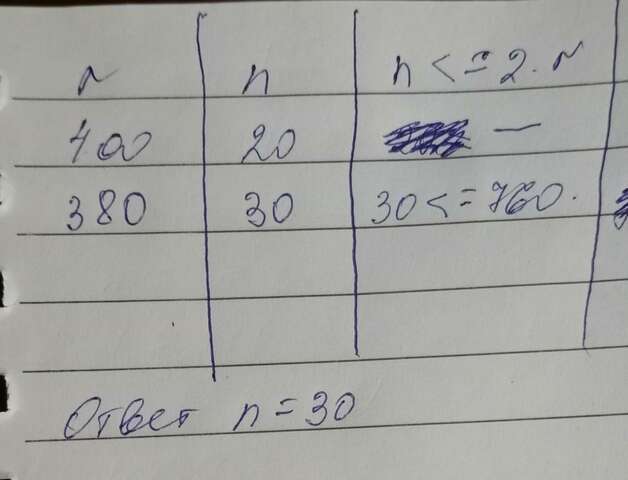 r n n <= 2·r
400 20 —
380 30 30 <= 760.
Ответ n = 30